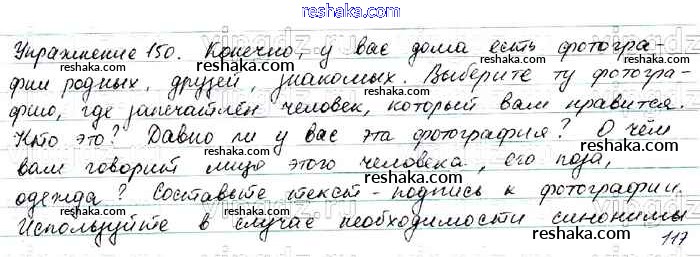 reshaka.com
Упражнение 150. Конечно, у вас дома есть фотогра-
фии родных, друзей, знакомых. Выберите ту фотогра-
фию, где запечатлён человек, который вам нравится.
Кто это? Давно ли у вас эта фотография? О чём
вам говорит лицо этого человека, его поза,
одежда? Составьте текст-подпись к фотографии.
Используйте в случае необходимости синонимы
117
reshaka.com